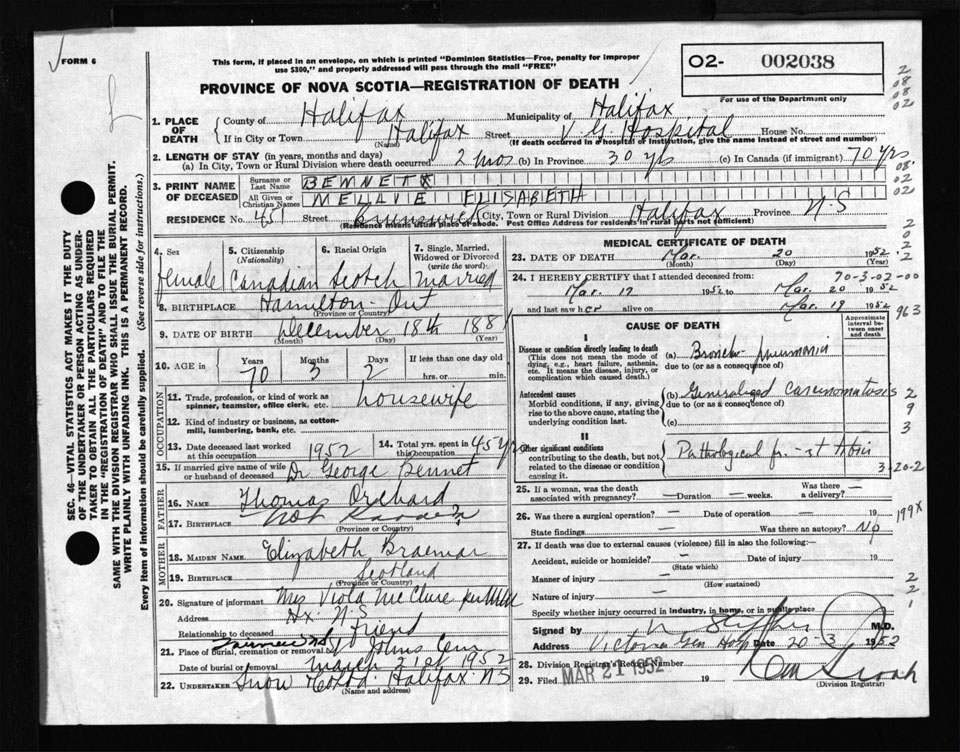 FORM 6
This form, if placed in an envelope, on which is printed "Dominion Statistics—Free, penalty for improper
use $300," and properly addressed will pass through the mail "FREE"
O2- 002038
PROVINCE OF NOVA SCOTIA—REGISTRATION OF DEATH
For use of the Department only
1. PLACE OF DEATH
County of Halifax Municipality of Halifax
If in City or Town Halifax Street V. G. Hospital House No.
(Name) (If death occurred in a hospital or institution, give the name instead of street and number)
2. LENGTH OF STAY (in years, months and days)
(a) In City, Town or Rural Division where death occurred 2 mos (b) In Province 30 yrs (c) In Canada (if immigrant) 70 yrs
3. PRINT NAME OF DECEASED
Surname or Last Name BENNETT
All Given or Christian Names MELLIE ELISABETH
RESIDENCE No. 451 Street Brunswick City, Town or Rural Division Halifax Province N.S
(Residence means usual place of abode. Post Office Address for residents in rural parts not sufficient)
4. Sex Female
5. Citizenship (Nationality) Canadian
6. Racial Origin Scotch
7. Single, Married, Widowed or Divorced (write the word) Married
8. BIRTHPLACE Hamilton - Ont
(Province or Country)
9. DATE OF BIRTH December 18th 1881
(Month) (Day) (Year)
10. AGE in Years 70 Months 3 Days 2 If less than one day old hrs. or min.
OCCUPATION
11. Trade, profession, or kind of work as spinner, teamster, office clerk, etc. housewife
12. Kind of industry or business, as cotton-mill, lumbering, bank, etc.
13. Date deceased last worked at this occupation 1952
14. Total yrs. spent in this occupation 45 yrs
15. If married give name of wife or husband of deceased Dr George Bennet
FATHER
16. NAME Thomas Orchard
17. BIRTHPLACE Not Known
(Province or Country)
MOTHER
18. MAIDEN NAME Elizabeth Braemar
19. BIRTHPLACE Scotland
(Province or Country)
20. Signature of informant Mrs Viola McClure
Address Hx. N.S.
Relationship to deceased Friend
21. Place of burial, cremation or removal St Johns Cem
Date of burial or removal March 21st 1952
22. UNDERTAKER Snow & Co Ltd. Halifax NS
(Name and address)
MEDICAL CERTIFICATE OF DEATH
23. DATE OF DEATH Mar. 20 1952
(Month) (Day) (Year)
24. I HEREBY CERTIFY that I attended deceased from:
70-3-02-00
Mar. 17 1952 to Mar. 20 1952
and last saw her alive on Mar. 19 1952
963
CAUSE OF DEATH
Approximate interval between onset and death
I
Disease or condition directly leading to death
(This does not mean the mode of dying, e.g., heart failure, asthenia, etc. It means the disease, injury, or complication which caused death.)
(a) Broncho-pneumonia
due to (or as a consequence of)
Antecedent causes
Morbid conditions, if any, giving rise to the above cause, stating the underlying condition last.
(b) Generalized carcinomatosis
due to (or as a consequence of)
(c)
II
Other significant conditions
contributing to the death, but not related to the disease or condition causing it.
Pathological
3-20-2
25. If a woman, was the death associated with pregnancy? — Duration — weeks. Was there a delivery? —
26. Was there a surgical operation? — Date of operation — 19
199X
State findings — Was there an autopsy? No
27. If death was due to external causes (violence) fill in also the following:
Accident, suicide or homicide? — Date of injury 19
(State which)
Manner of injury —
(How sustained)
Nature of injury —
Specify whether injury occurred in industry, in home, or in public place
Signed by M.D.
Address Victoria Gen Hosp Date 20-3 1952
28. Division Registrar's Record Number
29. Filed MAR 21 1952 19
(Division Registrar)
SEC. 46—VITAL STATISTICS ACT MAKES IT THE DUTY
OF THE UNDERTAKER OR PERSON ACTING AS UNDER-
TAKER TO OBTAIN ALL THE PARTICULARS REQUIRED
IN THE "REGISTRATION OF DEATH" AND TO FILE THE
SAME WITH THE DIVISION REGISTRAR WHO SHALL ISSUE THE BURIAL PERMIT.
WRITE PLAINLY WITH UNFADING INK. THIS IS A PERMANENT RECORD.
Every item of information should be carefully supplied. (See reverse side for instructions.)